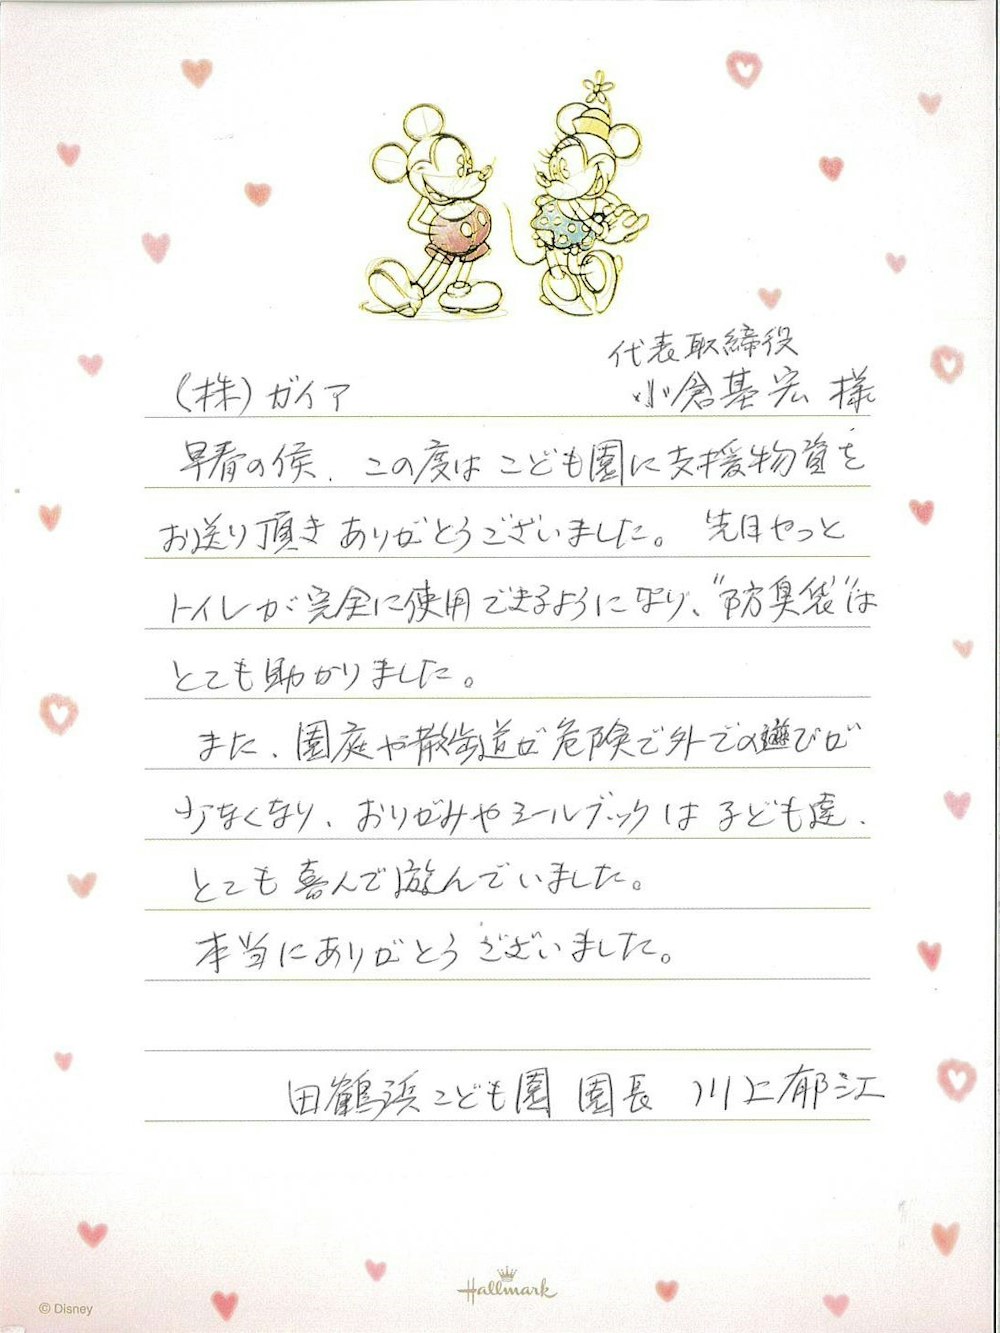 代表取締役
(株)ガイア 小倉基宏 様
早春の候、この度は こども園に支援物資を
お送り頂き ありがとうございました。 先日やっと
トイレが完全に使用できるようになり、"防臭袋"は
とても助かりました。
また、園庭や散歩道が危険で外での遊びが
少なくなり、おりがみやシールブックは子ども達、
とても喜んで遊んでいました。
本当にありがとうございました。
田鶴浜こども園 園長 川上郁江
Hallmark
© Disney